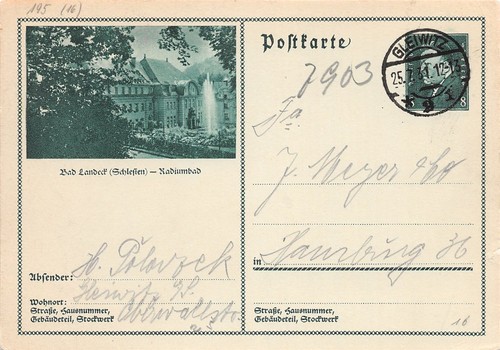 195 (16)
Postkarte
GLEIWITZ
25.7.31. 12-13
8
7903
Fa
J. Meyer & Co
in Hamburg 36
Bad Landeck (Schlesien) — Radiumbad
Absender: H.
Wohnort:
Straße, Hausnummer,
Gebäudeteil, Stockwerk
Straße, Hausnummer,
Gebäudeteil, Stockwerk
16